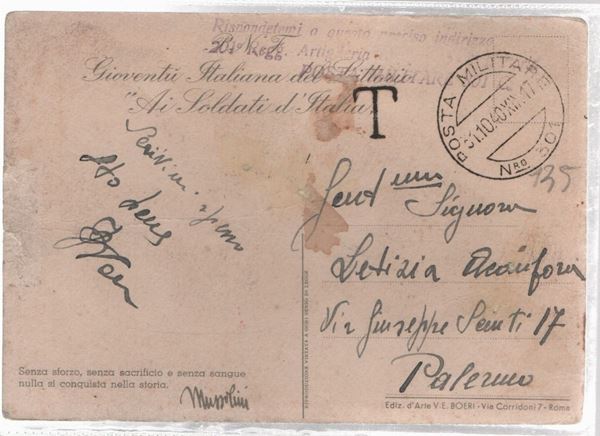 Rispondetemi a questo preciso indirizzo
20° Regg. Artiglieria
Gioventù Italiana del Littorio
"Ai Soldati d'Italia"
T
POSTA MILITARE
31.10.40 XIX.17
NRO 301
135
Scrivimi spesso
Sto bene
Gent.ma
Signora
Letizia
Via Giuseppe Sciuti 17
Palermo
Senza sforzo, senza sacrificio e senza sangue
nulla si conquista nella storia.
Mussolini
RIPRODUZIONE VIETATA A OGNI SENSO DI LEGGE
Ediz. d'Arte V. E. BOERI - Via Corridoni 7 - Roma